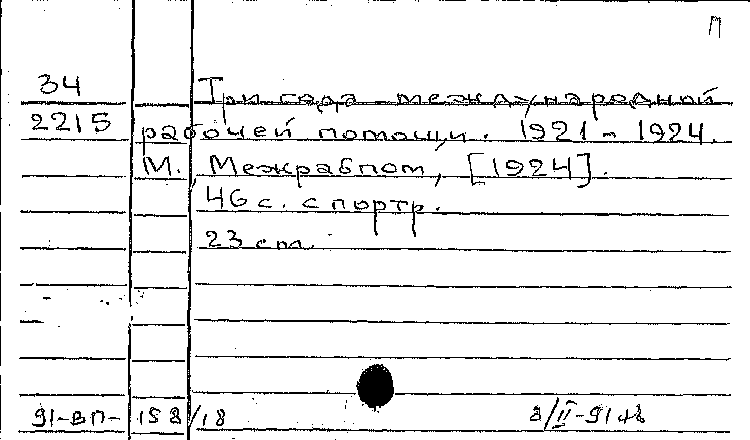 П
34
2215
Три года международной
рабочей помощи. 1921 - 1924.
М. Межрабпом, [1924].
46 с. с портр.
23 cm.
91-ВП- 158/18
8/II-91